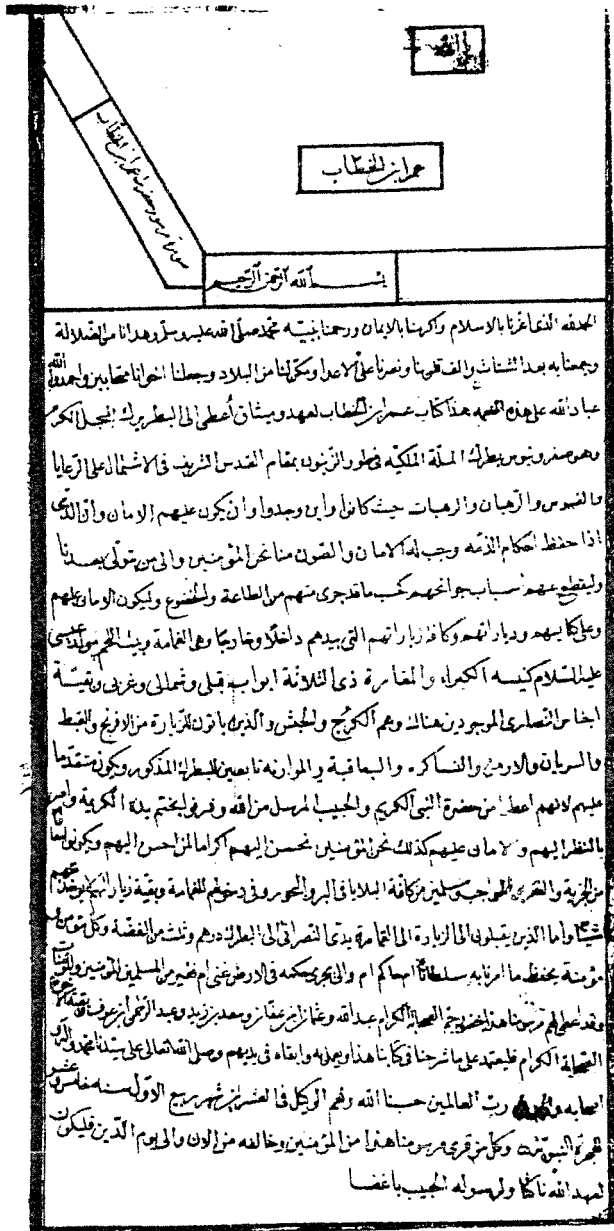 بالله
عمر ابن الخطاب
صورة مرسوم حضرة عمر ابن الخطاب
بسم الله الرحمن الرحيم
الحمد لله الذي اعزنا بالاسلام واكرمنا بالايمان ورحمنا بنبيه محمد صلى الله عليه وسلم وهدانا من الضلالة
وجمعنا به بعد الشتات والف قلوبنا ونصرنا على الاعداء ومكن لنا من البلاد وجعلنا اخوانا متحابين واحمدوا الله
عباد الله على هذه النعمة هذا كتاب عمر ابن الخطاب لعهد وميثاق أعطى الى البطريرك المبجل المكرم
وهو صفرونيوس بطرك الملة الملكية في طور الزيتون بمقام القدس الشريف في الاشتمال على الرعايا
والقسوس والرهبان والرهبات حيث كانوا واين وجدوا وان يكون عليهم الامان وان الذمى
اذا حفظ احكام الذمة وجب له الامان والصون منا نحن المؤمنين والى من يتولى بعدنا
وليقطع عنهم اسباب جوانحهم كحسب ما قد جرى منهم من الطاعة والخضوع وليكون الامان عليهم
وعلى كنايسهم ودياراتهم وكافة زياراتهم التي بيدهم داخلا وخارجا وهي القمامة وبيت لحم مولد عيسى
عليه السلام كنيسة الكبراء والمغارة ذى الثلاثة ابواب قبلى وشمالى وغربى وبقية
اجناس النصارى الموجودين هناك وهم الكرج والحبش والذين ياتون للزيارة من الافرنج والقبط
والسريان والارمن والنساطرة واليعاقبة والموارنة تابعين للبطرك المذكور ويكون متقدما
عليهم لانهم اعطوا من حضرة النبى الكريم والحبيب المرسل من الله وشرفوا بختم يده الكريمة وامر
بالنظر اليهم والامان عليهم كذلك نحن المؤمنين نحسن اليهم اكراما لمن احسن اليهم ويكونوا معافا
من الجزية والغفر والمواجب ومسلمين من كافة البلايا في البر والبحور وفى دخولهم للقمامة وبقية زياراتهم لا يؤخذ منهم
شيئا واما الذين يقبلون الى الزيارة الى القمامة يؤدى النصرانى الى البطرك درهم وثلث من الفضة وكل مؤمن و
مؤمنة يحفظ ما امرنا به سلطانا ام حاكم ام والى يجرى حكمه في الارض غنى ام فقير من المسلمين المؤمنين والمؤمنات
وقد اعطى لهم مرسومنا هذا بحضور جم الصحابة الكرام عبد الله وعثمان ابن عفان وسعد بن زيد وعبد الرحمن ابن عوف وبقية الاخوة
الصحابة الكرام فليعتمد على ما شرحنا في كتابنا هذا ويعمل به وابقاه في يديهم وصلى الله تعالى على سيدنا محمد واله و
اصحابه والحمد لله رب العالمين حسبنا الله ونعم الوكيل في العشرين من شهر ربيع الاول سنة خامس وعشر
للهجرة النبوية وكل من قرى مرسومنا هذا من المؤمنين وخالفه من الان والى يوم الدين فليكون
لعهد الله ناكثا ولرسوله الحبيب باغضا